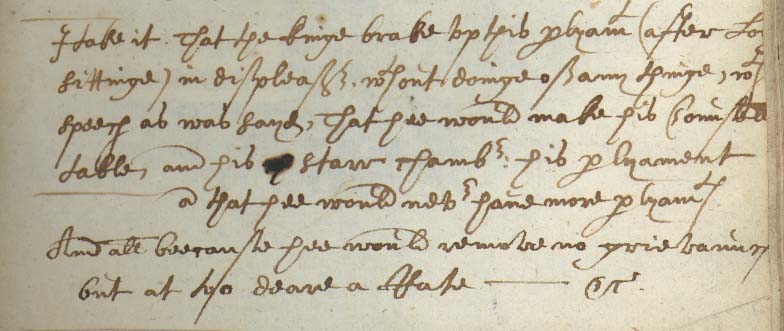 I take it. That the kinge brake vp this p lyamt (after
sittinge) in displeasr. wthout doinge of anny thinge, wth
speech as was sayd, That hee would make his Counsell
table, and his starr chambr. his p lyament
& that hee would nevr haue more p lyamt
And all beecause hee would remove no grievaunc
but at too deare a Rate &c.